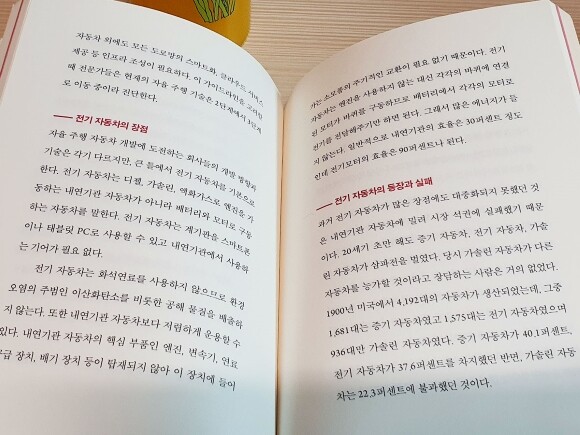 자동차 외에도 모든 도로망의 스마트화, 클라우드 서비스
제공 등 인프라 조성이 필요하다. 이 가이드라인을 고려할
때 전문가들은 현재의 자율 주행 기술은 2단계에서 3단계
로 이동 중이라 진단한다.
전기 자동차의 장점
자율 주행 자동차 개발에 도전하는 회사들의 개발 방향과
기술은 각기 다르지만, 큰 틀에서 전기 자동차를 기본으로
한다. 전기 자동차는 디젤, 가솔린, 액화가스로 엔진을 가
동하는 내연기관 자동차가 아니라 배터리와 모터로 구동
하는 자동차를 말한다. 전기 자동차는 계기판을 스마트폰
이나 태블릿 PC로 사용할 수 있고 내연기관에서 사용하
는 기어가 필요 없다.
전기 자동차는 화석연료를 사용하지 않으므로 환경
오염의 주범인 이산화탄소를 비롯한 공해 물질을 배출하
지 않는다. 또한 내연기관 자동차보다 저렴하게 운용할 수
있다. 내연기관 자동차의 핵심 부품인 엔진, 변속기, 연료
급 장치, 배기 장치 등이 탑재되지 않아 이 장치에 들어
가는 소모품의 주기적인 교환이 필요 없기 때문이다. 전기
자동차는 엔진을 사용하지 않는 대신 각각의 바퀴에 연결
된 모터가 바퀴를 구동하므로 배터리에서 각각의 모터로
전기를 전달해주기만 하면 된다. 그래서 많은 에너지가 들
지 않는다. 일반적으로 내연기관의 효율은 30퍼센트 정도
인데 전기모터의 효율은 90퍼센트나 된다.
전기 자동차의 등장과 실패
과거 전기 자동차가 많은 장점에도 대중화되지 못했던 것
은 내연기관 자동차에 밀려 시장 석권에 실패했기 때문
이다. 20세기 초만 해도 증기 자동차, 전기 자동차, 가솔
린 자동차가 삼파전을 벌였다. 당시 가솔린 자동차가 다른
자동차를 능가할 것이라고 장담하는 사람은 거의 없었다.
1900년 미국에서 4,192대의 자동차가 생산되었는데, 그중
1,681대는 증기 자동차였고 1,575대는 전기 자동차였으며
936대만 가솔린 자동차였다. 증기 자동차가 40.1퍼센트,
전기 자동차가 37.6퍼센트를 차지했던 반면, 가솔린 자동
차는 22.3퍼센트에 불과했던 것이다.